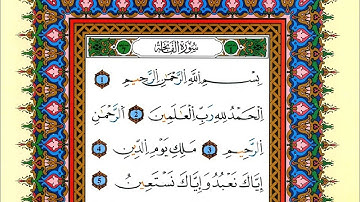 سُورَةُ الفَاتِحَةِ
بِسْمِ اللَّهِ الرَّحْمَٰنِ الرَّحِيمِ ١
الْحَمْدُ لِلَّهِ رَبِّ الْعَالَمِينَ ٢ الرَّحْمَٰنِ
الرَّحِيمِ ٣ مَلِكِ يَوْمِ الدِّينِ ٤
إِيَّاكَ نَعْبُدُ وَإِيَّاكَ نَسْتَعِينُ ٥